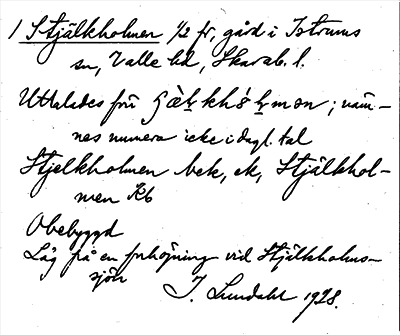 1 Stjälkholmen 1/2 fr, gård i Istrums
sn, Valle hd, Skarab. l.
Uttalades förr
; näm-
nes numera icke i dagl. tal
Stjelkholmen bek, ek, Stjälkhol-
men Kb
Obebyggd
Låg på en förhöjning vid Stjälkholms-
sjön
J. Lundahl 1928.